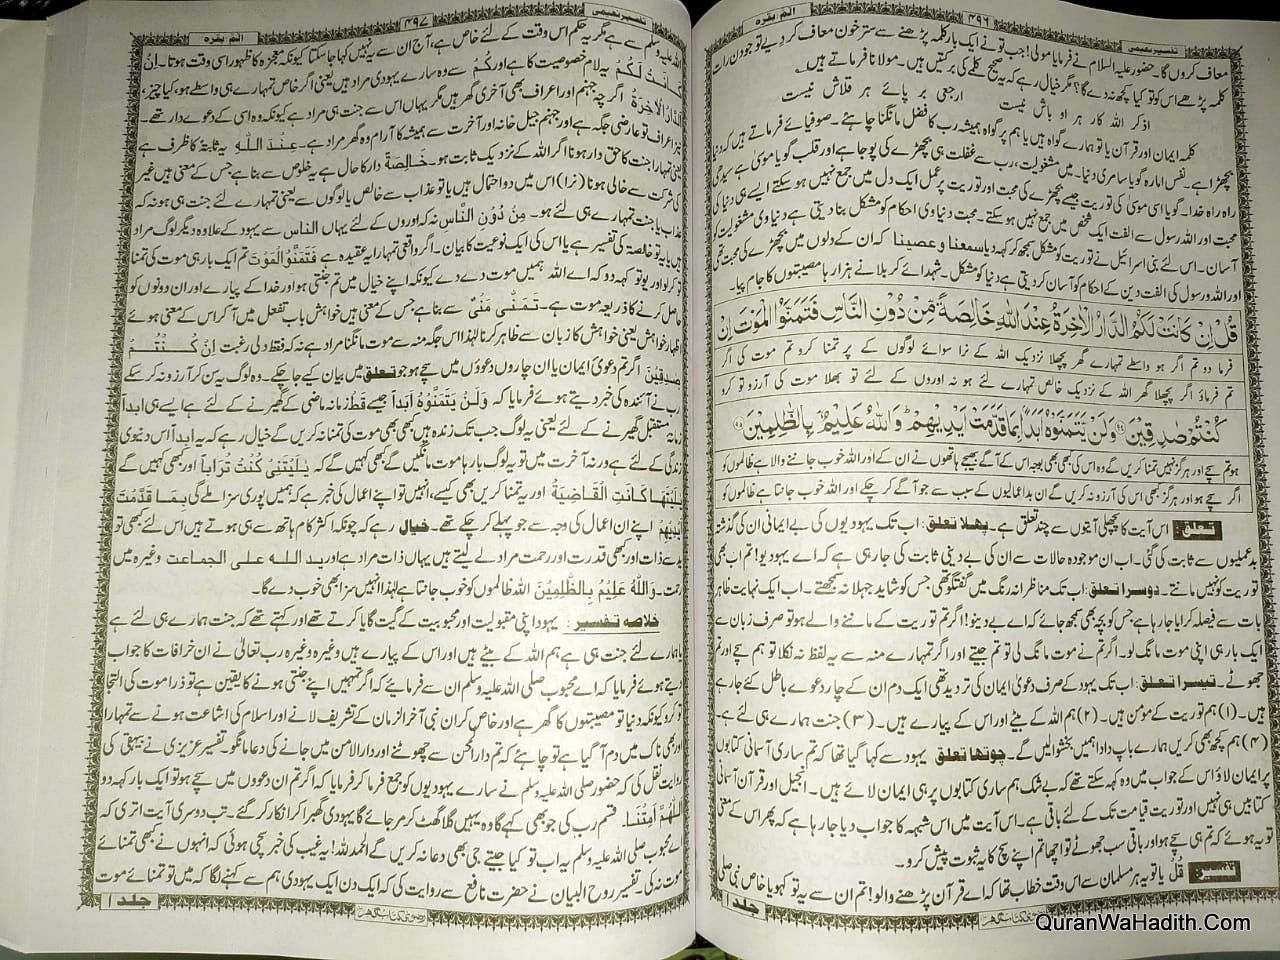 ۴۹۶
تفسیر نعیمی
الٓمّٓ بقرہ
معاف کروں گا۔ حضور علیہ السلام نے فرمایا مولیٰ! جب تو نے ایک بار کلمہ پڑھنے سے ستر خون معاف کر دیے تو جو دن رات
کلمہ پڑھے اس کو تو کیا کچھ نہ دے گا؟ مگر خیال رہے کہ یہ صحیح کلمے کی برکتیں ہیں۔ مولانا فرماتے ہیں
اذکر اللہ کار ہر او باش نیست ارجعی بر پائے ہر قلاش نیست
کلمہ ایمان اور قرآن یا تو ہمارے گواہ ہیں یا ہم پر گواہ ہمیشہ رب کا فضل مانگنا چاہئے۔ صوفیائے فرماتے ہیں کہ دنیا
بچھڑا ہے۔ نفس امارہ گویا سامری دنیا۔ میں مشغولیت، رب سے غفلت ہی بچھڑے کی پوجا ہے اور قلب گویا موسیٰ ہے سیدھی
راہ راہ خدا۔ گویا اسی موسیٰ کی توریت جیسے بچھڑے کی محبت اور توریت پر عمل ایک دل میں جمع نہیں ہو سکتے ایسے ہی دنیا کی
محبت اور اللہ رسول سے الفت ایک شخص میں جمع نہیں ہو سکتے۔ محبت دنیاوی احکام کو مشکل بنا دیتی ہے دنیاوی مشغولیت کو
آسان۔ اس لئے بنی اسرائیل نے توریت کو مشکل سمجھ کر کہہ دیا سمعنا وعصینا کہ ان کے دلوں میں بچھڑے کی محبت تھی
اور اللہ ورسول کی الفت دین کے احکام کو آسان کر دیتی ہے دنیا کو مشکل۔ شہدائے کربلا نے ہزار ہا مصیبتوں کا جام پیا۔
قُلْ اِنْ كَانَتْ لَكُمُ الدَّارُ الْاٰخِرَةُ عِنْدَ اللّٰهِ خَالِصَةً مِّنْ دُوْنِ النَّاسِ فَتَمَنَّوُا الْمَوْتَ اِنْ
فرما دو تم اگر ہو واسطے تمہارے گھر پچھلا نزدیک اللہ کے نرا سوائے لوگوں کے پر تمنا کرو تم موت کی اگر
تم فرماؤ اگر پچھلا گھر اللہ کے نزدیک خالص تمہارے لئے ہو نہ اوروں کے لئے تو بھلا موت کی آرزو تو کرو
كُنْتُمْ صٰدِقِيْنَ وَلَنْ يَّتَمَنَّوْهُ اَبَدًۢا بِمَا قَدَّمَتْ اَيْدِيْهِمْ وَاللّٰهُ عَلِيْمٌۢ بِالظّٰلِمِيْنَ
ہو تم سچے اور ہرگز نہیں تمنا کریں گے وہ اس کی بھی بوجہ اس کے آگے بھیجے ہاتھوں نے ان کے اور اللہ خوب جاننے والا ہے ظالموں کو
اگر سچے ہو اور ہرگز کبھی اس کی آرزو نہ کریں گے ان بداعمالیوں کے سبب سے جو آگے کر چکے اور اللہ خوب جانتا ہے ظالموں کو
تعلق: اس آیت کا پچھلی آیتوں سے چند تعلق ہے۔ پہلا تعلق: اب تک یہودیوں کی بے ایمانی ان کی گذشتہ
بدعملیوں سے ثابت کی گئی۔ اب ان موجودہ حالات سے ان کی بے دینی ثابت کی جا رہی ہے کہ اے یہودیو! تم اب بھی
توریت کو نہیں مانتے۔ دوسرا تعلق: اب تک مناظرانہ رنگ میں گفتگو تھی جس کو شاید جہلا نہ سمجھتے۔ اب ایک نہایت ظاہر
بات سے فیصلہ کرایا جا رہا ہے جس کو بچہ بھی سمجھ جائے کہ اے بے دینو! اگر تم توریت کے ماننے والے ہو تو صرف زبان سے
ایک بار ہی اپنی موت مانگ لو۔ اگر تم نے موت مانگ لی تو تم جیتے اور اگر تمہارے منہ سے یہ لفظ نہ نکلا تو ہم سچے اور تم
جھوٹے۔ تیسرا تعلق: اب تک یہود کے صرف دعویٰ ایمان کی تردید تھی ایک دم ان کے چار دعوے باطل کئے جا رہے
ہیں۔ (۱) ہم توریت کے مؤمن ہیں۔ (۲) ہم اللہ کے بیٹے اور اس کے پیارے ہیں۔ (۳) جنت ہمارے ہی لئے ہے۔
(۴) ہم کچھ بھی کریں ہمارے باپ دادا ہمیں بخشوا لیں گے۔ چوتھا تعلق یہود سے کہا گیا تھا کہ تم ساری آسمانی کتابوں
پر ایمان لاؤ اس کے جواب میں وہ کہہ سکتے تھے کہ بے شک ہم ساری کتابوں پر ہی ایمان لائے ہیں۔ انجیل اور قرآن آسمانی
کتابیں ہی نہیں اور توریت قیامت تک کے لئے باقی ہے۔ اس آیت میں اس شبہہ کا جواب دیا جا رہا ہے کہ پھر اس کے معنی
تو یہ ہوئے کہ تم ہی سچے ہو اور باقی سب جھوٹے تو اچھا تم اپنے سچ کا یہ ثبوت پیش کرو۔
تفسیر: قُلْ یا تو یہ ہر مسلمان سے اس وقت خطاب تھا کہ اے قرآن پڑھنے والو! تم ان سے یہ تو کہو یا خاص نبی صلی
جلد ۱
رضوی کتاب گھر
۴۹۷
تفسیر نعیمی
الٓمّٓ بقرہ
اللہ علیہ وسلم سے ہے مگر یہ حکم اس وقت کے لئے خاص ہے، آج ان سے یہ نہیں کہا جا سکتا کیونکہ معجزہ کا ظہور اسی وقت ہوتا۔ اِنْ
كَانَتْ لَكُمْ یہ لام خصوصیت کا ہے اور كُمْ سے وہ سارے یہودی مراد ہیں یعنی اگر خاص تمہارے ہی واسطے ہو، کیا چیز،
الدَّارُ الْاٰخِرَةُ اگرچہ جہنم اور اعراف بھی آخری گھر ہیں مگر یہاں اس سے جنت ہی مراد ہے کیونکہ وہ اسی کے دعوے دار تھے۔
نیز اعراف تو عارضی جگہ ہے اور جہنم جیل خانہ اور آخرت سے ہمیشہ کا آرام وہ گھر مراد ہے۔ عِنْدَ اللّٰهِ یہ ثابتۃ کا ظرف ہے
یعنی تمہارا جنت کا حق دار ہونا اگر اللہ کے نزدیک ثابت ہو۔ خَالِصَةً دار کا حال ہے یہ خلوص سے بنا ہے جس کے معنی ہیں غیر
کی شرکت سے خالی ہونا (نرا) اس میں دو احتمال ہیں یا تو عذاب سے خالص یا لوگوں سے یعنی تمہارے لئے جنت ہی ہو نہ کہ
عذاب یا جنت تمہارے ہی لئے ہو۔ مِنْ دُوْنِ النَّاسِ نہ کہ اوروں کے لئے یہاں الناس سے یہود کے علاوہ دیگر لوگ مراد
ہیں یا یہ تو خالصۃ کی تفسیر ہے یا اس کی ایک نوعیت کا بیان۔ اگر واقعی تمہارا یہ عقیدہ ہے فَتَمَنَّوُا الْمَوْتَ تم ایک بار ہی موت کی تمنا
تو کر لو اور یوں کہہ دو کہ اے اللہ ہمیں موت دے دے کیونکہ اپنے خیال میں تم جنتی ہو اور خدا کے پیارے اور ان دونوں کو
حاصل کرنے کا ذریعہ موت ہے۔ تَمَنّٰی مَنْیٌ سے بنا ہے جس کے معنی ہیں خواہش باب تفعل میں آ کر اس کے معنی ہوئے
اظہار خواہش یعنی خواہش کا زبان سے ظاہر کرنا لہٰذا اس جگہ منہ سے موت مانگنا مراد ہے نہ کہ فقط دلی رغبت اِنْ كُنْتُمْ
صٰدِقِيْنَ اگر تم دعویٰ ایمان یا ان چاروں دعوؤں میں سچے ہو جو تعلق میں بیان کیے جا چکے۔ وہ لوگ یہ سن کر آرزو نہ کر سکے
رب نے آئندہ کی خبر دیتے ہوئے فرمایا کہ وَلَنْ يَّتَمَنَّوْهُ اَبَدًا جیسے قط زمانہ ماضی کے گھیرنے کے لئے ہے ایسے ہی ابداً
زمانہ مستقبل گھیرنے کے لئے یعنی یہ لوگ جب تک زندہ ہیں کبھی بھی موت کی تمنا نہ کریں گے خیال رہے کہ یہ ابداً اس دنیوی
زندگی کے لئے ہے ورنہ آخرت میں تو یہ لوگ بار ہا موت مانگیں گے کبھی کہیں گے کہ يٰلَيْتَنِيْ كُنْتُ تُرَابًا اور کبھی کہیں گے
يٰلَيْتَهَا كَانَتِ الْقَاضِيَةَ اور یہ تمنا کریں بھی کیسے، انہیں تو اپنے اعمال کی خبر ہے کہ ہمیں پوری سزا ملے گی بِمَا قَدَّمَتْ
اَيْدِيْهِمْ اپنے ان اعمال کی وجہ سے جو پہلے کر چکے تھے۔ خیال رہے کہ چونکہ اکثر کام ہاتھ سے ہی ہوتے ہیں اس لئے کبھی تو
ید سے ذات اور کبھی قدرت اور رحمت مراد لے لیتے ہیں یہاں ذات مراد ہے اور ید اللہ علی الجماعت وغیرہ میں
رحمت۔ وَاللّٰهُ عَلِيْمٌ بِالظّٰلِمِيْنَ اللہ ظالموں کو خوب جانتا ہے لہٰذا انہیں سزا بھی خوب دے گا۔
خلاصہ تفسیر: یہود اپنی مقبولیت اور محبوبیت کے گیت گایا کرتے تھے اور کہتے تھے کہ جنت ہمارے ہی لئے ہے
یا ہمارے لئے جنت ہی ہے ہم اللہ کے بیٹے ہیں اور اس کے پیارے ہیں وغیرہ وغیرہ رب تعالیٰ نے ان خرافات کا جواب
دیتے ہوئے فرمایا کہ اے محبوب صلی اللہ علیہ وسلم ان سے فرمائیے کہ اگر تمہیں اپنے جنتی ہونے کا یقین ہے تو ذرا موت کی التجا
تو کرو کیونکہ دنیا تو مصیبتوں کا گھر ہے اور خاص کر ان نبی آخر الزمان کے تشریف لانے اور اسلام کی اشاعت ہونے سے تمہارا
اور بھی ناک میں دم آ گیا ہے تو چاہئے کہ تم دار المحن سے چھوٹنے اور دار الامن میں جانے کی دعا مانگو۔ تفسیر عزیزی نے بیہقی کی
روایت نقل کی کہ حضور صلی اللہ علیہ وسلم نے سارے یہودیوں کو جمع فرما کر فرمایا کہ اگر تم ان دعووں میں سچے ہو تو ایک بار کہہ دو
اَللّٰهُمَّ اَمِتْنَا۔ قسم رب کی جو بھی کہے گا وہ یہیں گلا گھٹ کر مر جائے گا یہودی گھبرا کر انکار کر گئے۔ تب دوسری آیت اتری کہ
اے محبوب صلی اللہ علیہ وسلم یہ اب تو کیا جیتے جی بھی دعا نہ کریں گے الحمد للہ! یہ غیب کی خبر سچی ہوئی کہ انہوں نے کبھی تمنائے
موت نہ کی۔ تفسیر روح البیان نے حضرت نافع سے روایت کی کہ ایک دن ایک یہودی ہم سے کہنے لگا کہ میں تو تمنائے موت
جلد ۱
رضوی کتاب گھر
QuranWaHadith.Com